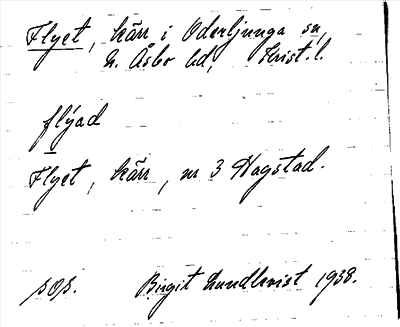 Flyet, kärr i Oderljunga sn,
N. Åsbo hd, Krist. l.
flýad
Flyet, kärr, nr 3 Hagstad.
pop. Birgit Lundkvist 1938.